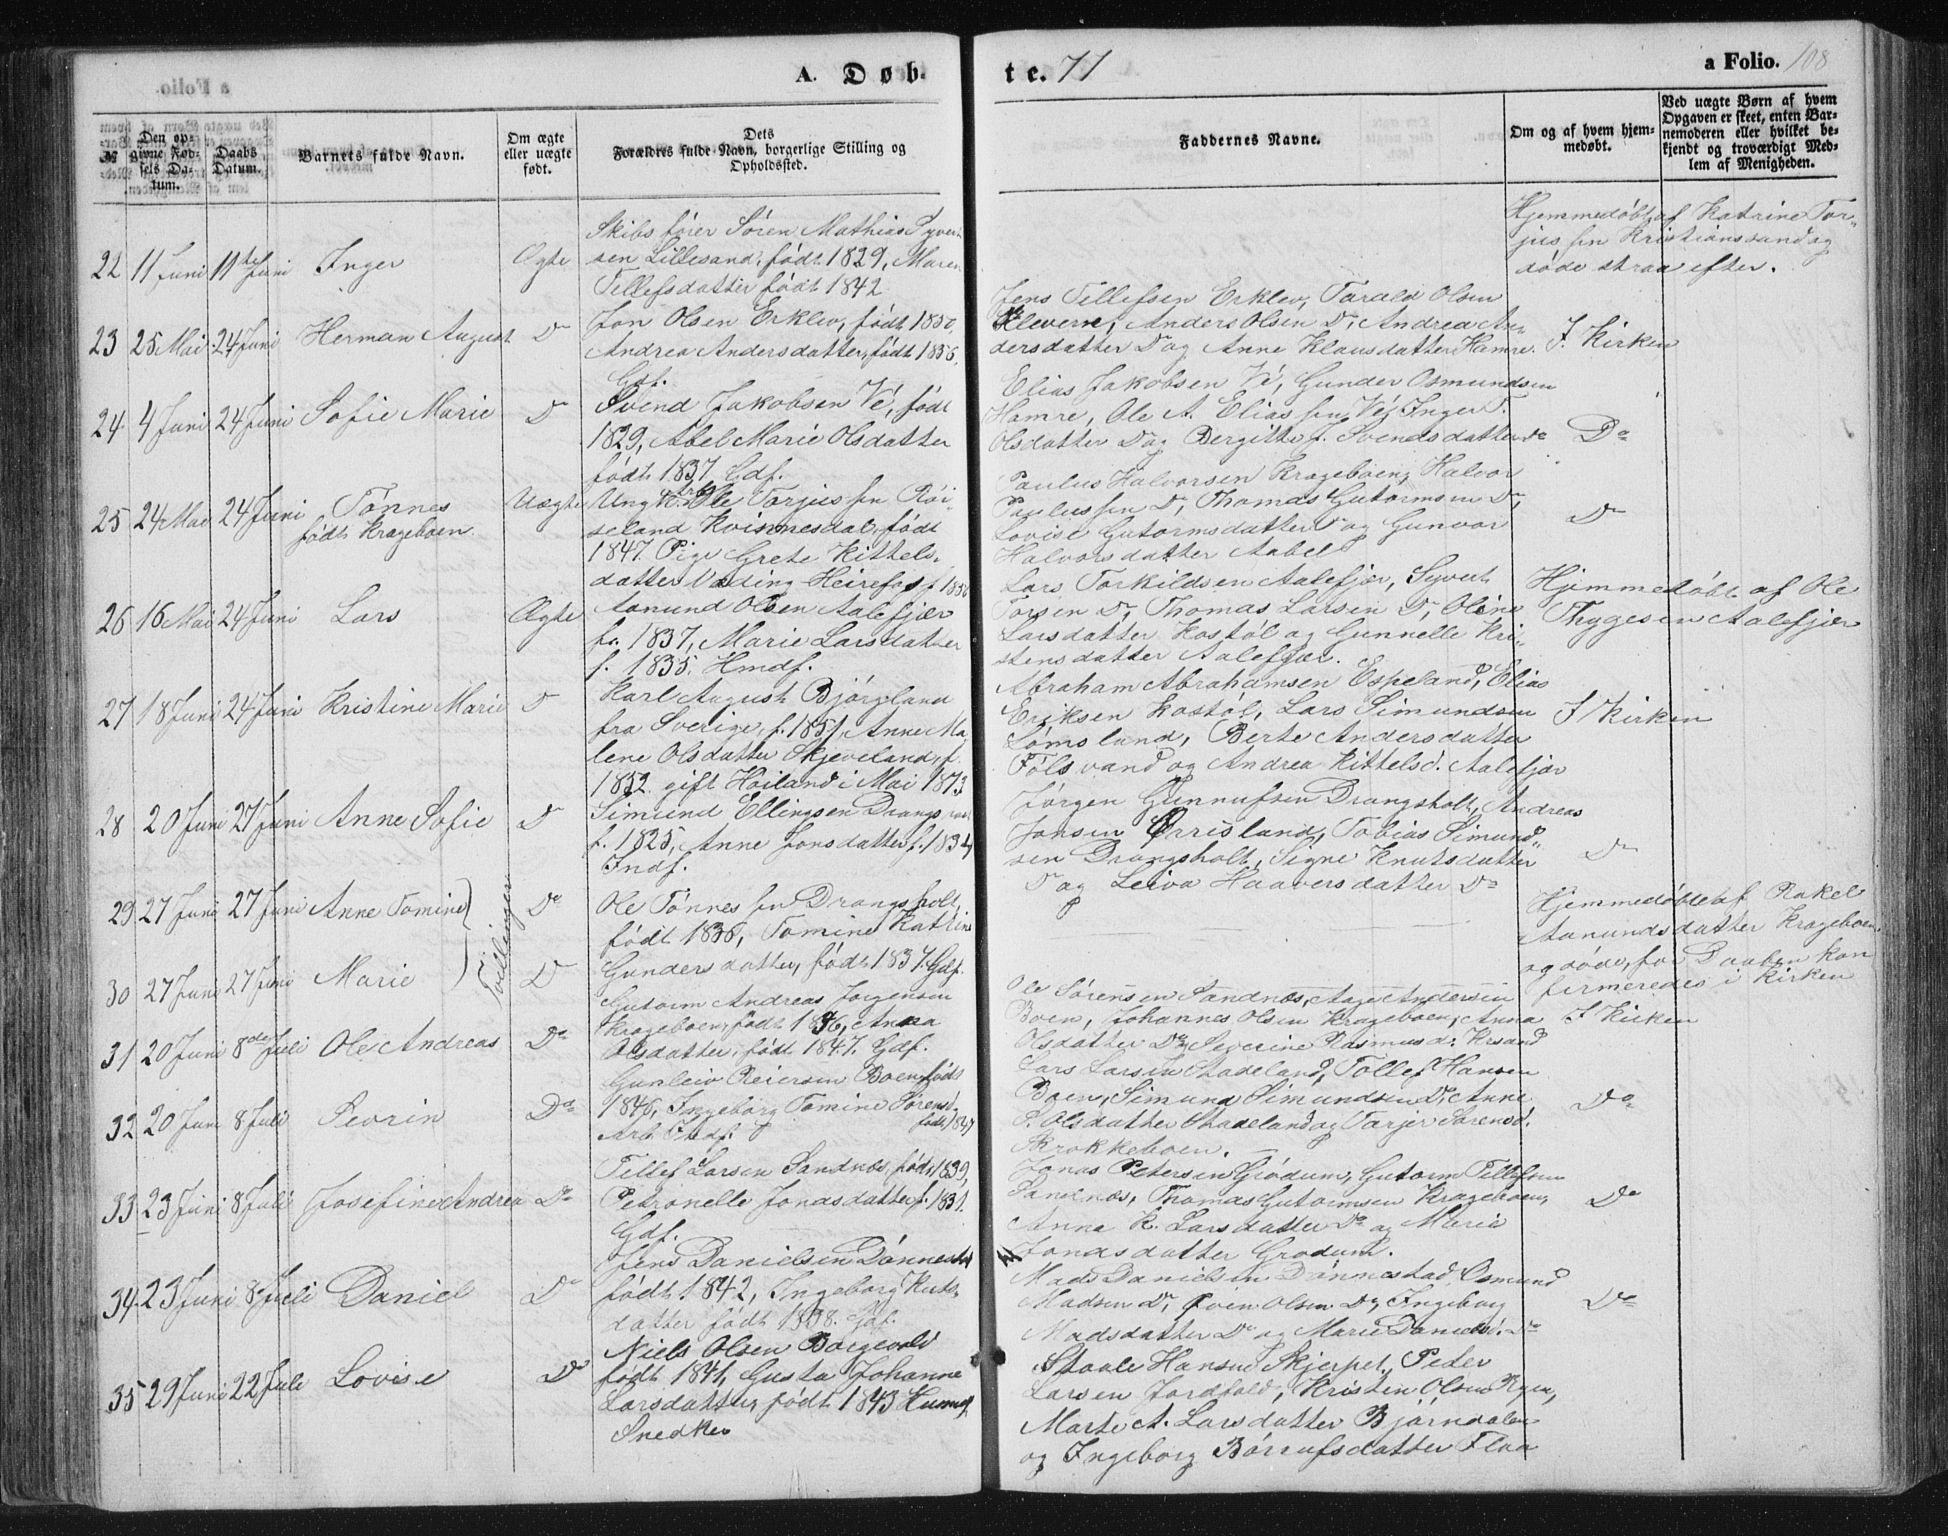 A. Døb-
te. 71
a Folio. 108
No
Den op-
givne Fød-
sels Da-
tum.
Daabs
Datum.
Barnets fulde Navn.
Om ægte
eller uægte
født.
Dets
Forældres fulde Navn, borgerlige Stilling og
Opholdssted.
Faddernes Navne.
Om og af hvem hjem-
medøbt.
Ved uægte Børn af hvem
Opgaven er skeet, enten Bar-
nemoderen eller hvilket be-
kjendt og troværdigt Med-
lem af Menigheden.
22 11 Juni 11te Juni Inger Ægte
Skibsfører Sören Mathias Syvert
sen Lillesand, født 1829, Maren
Tellefsdatter født 1842
Hjemmedøbt af Katrine Tor-
jus sn Kristianssand og
døde strax efter.
23 25 Mai 24 Juni Herman August Do
Jon Olsen Erklev, født 1850,
Andrea Andersdatter, født 1856,
Gdf.
Jens Tellefsen Erklev, Tarald Olsen
Klevern, Anders Olsen Do, Andrea An-
dersdatter Do og Anne Klausdatter Hamre.
I. Kirken
24 4 Juni 24 Juni Sofie Marie Do
Svend Jakobsen Vé, født
1829, Abel Marie Olsdatter
født 1837. Gdf.
Elias Jakobsen Vé, Gunder Osmundsen
Hamre, Ole A. Elias sn Vé, Inger T.
Olsdatter Do og Bergitte J. Svendsdatter Do
Do
25 24 Mai 24 Juni Tönnes
født Krageboen
Uægte
Ung K. Ole Torjus sn Röi-
seland Kvinnesdal, født
1847. Pige Grete Kittels-
datter Væding Heirefos f. 1850
Paulus Halvorsen Krageboen, Halvor
Paulus sn Do, Thomas Gutormsen Do,
Lovise Gutormsdatter Do og Gunvor
Halvorsdatter Aabel
Do
26 16 Mai 24 Juni Lars Ægte
Aanund Olsen Aalefjær
f. 1837, Marie Larsdatter
f. 1835. Hmdf.
Lars Torkildsen Aalefjær, Syvert
Torsen Do, Thomas Larsen Do, Oline
Larsdatter Kostöl og Gunnelle Kri-
stensdatter Aalefjær.
Hjemmedøbt af Ole
Thygesen Aalefjær
27 18 Juni 24 Juni Kristine Marie Do
Karl August Björgland
fra Sverige, f. 1851, Anne Ma
lene Olsdatter Skjeveland, f.
1852. gift Höiland i Mai 1873
Abraham Abrahamsen Espeland, Elias
Eriksen Kostöl, Lars Simundsen
Lömsland, Berte Andersdatter
Fölsvand og Andrea Kittelsd. Aalefjær
I Kirken
28 20 Juni 27 Juni Anne Sofie Do
Simund Ellingsen Drangs
f. 1825, Anne Jonsdatter f. 1834
Indf.
Jörgen Gunnufsen Drangsholt, Andreas
Jonsen Ørrisland, Tobias Simund-
sen Drangsholt, Signe Knutsdatter
Do og Leiva Haaversdatter Do
Do
29 27 Juni 27 Juni Anne Tomine
30 27 Juni 27 Juni Marie
Tvillinger
Do
Do
Ole Tönnes sn Drangsholt,
født 1836, Tomine Katrine
Gundersdatter, født 1837. Gdf.
Hjemmedøbte af Rakel
Aanundsdatter Krageboen
og døde, før Daaben kon
firmeredes i Kirken
31 20 Juni 8de Juli Ole Andreas Do
Gutorm Andreas Jörgensen
Krageboen, født 1846, Anna
Olsdatter, født 1847. Gdf.
Ole Sörensen Sandnæs, Aage Andersen
Boen, Johannes Olsen Krageboen, Anna
Olsdatter Do, Severine Rasmusd. Krsand
I Kirken
32 20 Juni 8 Juli Pevrin Do
Gunleiv Reiersen Boen, født
1846, Ingeborg Tomine Sörensd.
født 1847
Arb.
Lars Larsen Stadeland, Tollef Hansen
Boen, Simund Simundsen Do, Anne
P. Olsdatter Stadeland og Tarjer Sørensd.
Krokkeboen.
Do
33 23 Juni 8 Juli Josefine Andrea Do
Tellef Larsen Sandnæs, født 1839,
Petronelle Jonasdatter f. 1831.
Gdf.
Jonas Petersen Grödum, Gutorm Tellefsen
Sandnæs, Thomas Gutormsen Krageboen,
Anne K. Larsdatter Do og Marie
Jonasdatter Grödum.
Do
34 23 Juni 8 Juli Daniel Do
Jens Danielsen Dönnestad
født 1842, Ingeborg Knuts-
datter født 1838. Gdf.
Mads Danielsen Dönnestad, Osmund
Madsen Do, Even Olsen Do, Ingeborg
Madsdatter Do og Marie Danielsd. Do
Do
35 29 Juni 22 Juli Lovise Do
Niels Olsen Boegevold
født 1841, Gusta Johanne
Larsdatter, født 1843
Snedker
Staale Hansen Skjerpet, Peder
Larsen Jordfald, Kristen Olsen Ryen,
Marte A. Larsdatter Björndalen
og Ingeborg Börrufsdatter Flaa